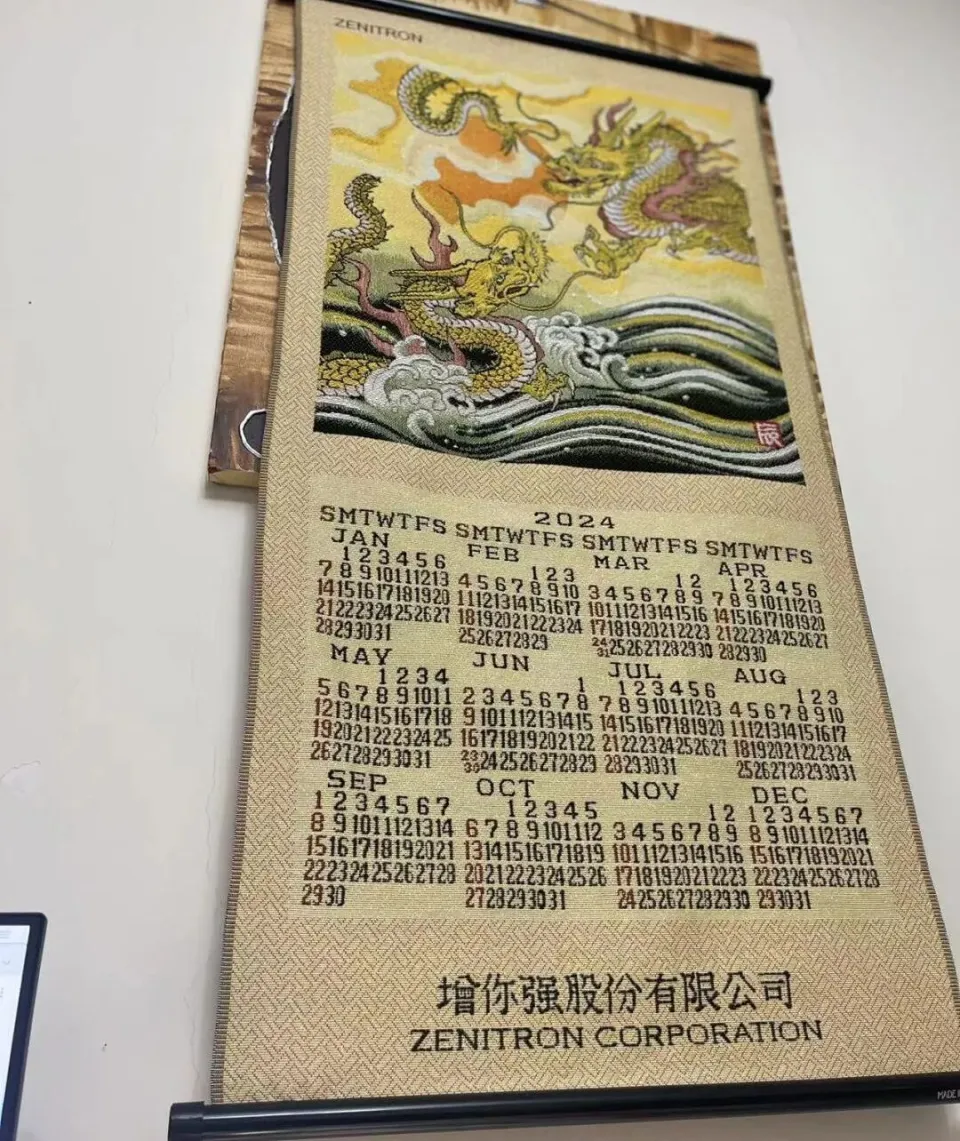 ZENITRON
辰
2024
SMTWTFS SMTWTFS SMTWTFS SMTWTFS
JAN FEB MAR APR
1 2 3 4 5 6 1 2 3 1 2 1 2 3 4 5 6
7 8 9 10 11 12 13 4 5 6 7 8 9 10 3 4 5 6 7 8 9 7 8 9 10 11 12 13
14 15 16 17 18 19 20 11 12 13 14 15 16 17 10 11 12 13 14 15 16 14 15 16 17 18 19 20
21 22 23 24 25 26 27 18 19 20 21 22 23 24 17 18 19 20 21 22 23 21 22 23 24 25 26 27
28 29 30 31 25 26 27 28 29 24/31 25 26 27 28 29 30 28 29 30
MAY JUN JUL AUG
1 2 3 4 1 1 2 3 4 5 6 1 2 3
5 6 7 8 9 10 11 2 3 4 5 6 7 8 7 8 9 10 11 12 13 4 5 6 7 8 9 10
12 13 14 15 16 17 18 9 10 11 12 13 14 15 14 15 16 17 18 19 20 11 12 13 14 15 16 17
19 20 21 22 23 24 25 16 17 18 19 20 21 22 21 22 23 24 25 26 27 18 19 20 21 22 23 24
26 27 28 29 30 31 23/30 24 25 26 27 28 29 28 29 30 31 25 26 27 28 29 30 31
SEP OCT NOV DEC
1 2 3 4 5 6 7 1 2 3 4 5 1 2 1 2 3 4 5 6 7
8 9 10 11 12 13 14 6 7 8 9 10 11 12 3 4 5 6 7 8 9 8 9 10 11 12 13 14
15 16 17 18 19 20 21 13 14 15 16 17 18 19 10 11 12 13 14 15 16 15 16 17 18 19 20 21
22 23 24 25 26 27 28 20 21 22 23 24 25 26 17 18 19 20 21 22 23 22 23 24 25 26 27 28
29 30 27 28 29 30 31 24 25 26 27 28 29 30 29 30 31
增你强股份有限公司
ZENITRON CORPORATION
MADE